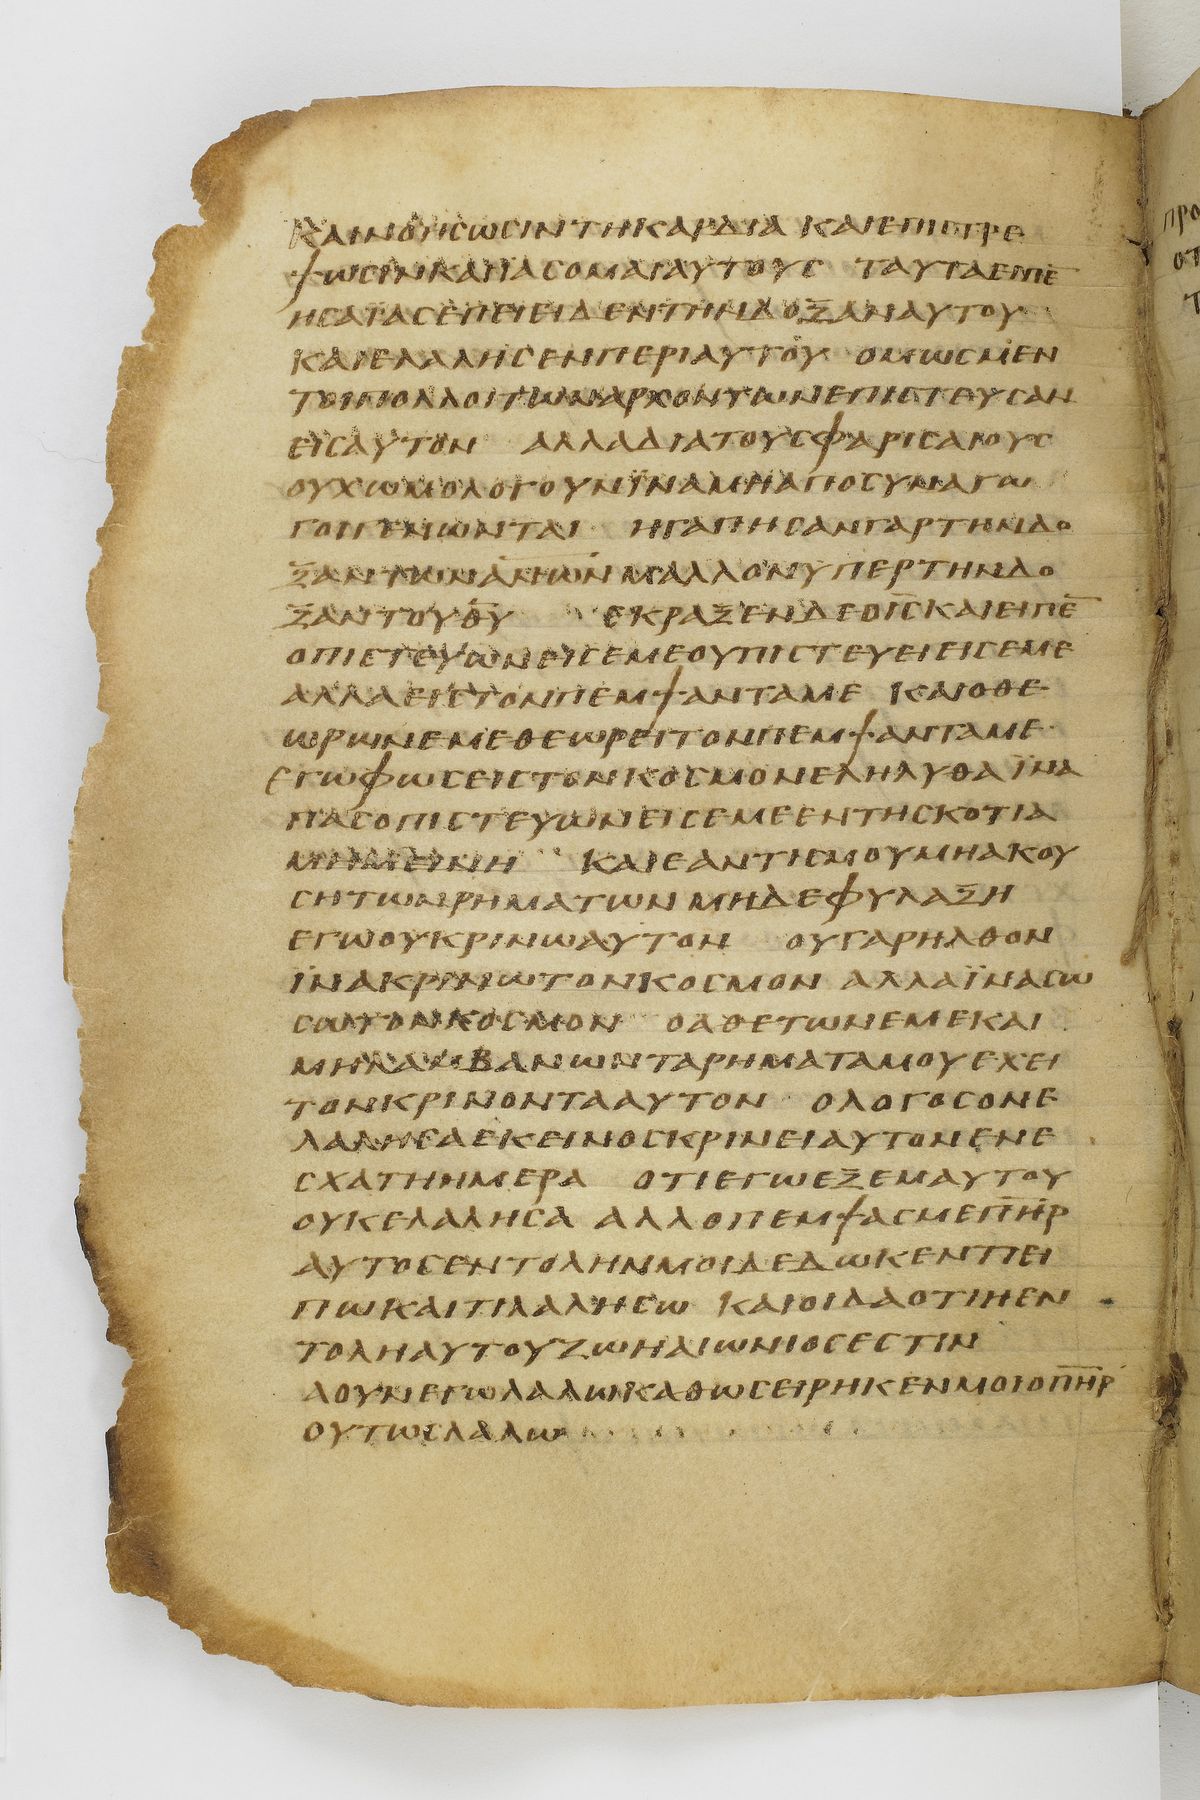 ΚΑΙΝΟΗСΩСΙΝΤΗΚΑΡΔΙΑ ΚΑΙΕΠΙСΤΡΕ
ΨΩСΙΝΚΑΙΙΑСΟΜΑΙΑΥΤΟΥС ΤΑΥΤΑΕΙΠΕ̅
ΗСΑΙΑСΕΠΕΙΕΙΔΕΝΤΗΝΔΟΞΑΝΑΥΤΟΥ
ΚΑΙΕΛΑΛΗСΕΝΠΕΡΙΑΥΤΟΥ ΟΜΩСΜΕΝ
ΤΟΙΠΟΛΛΟΙΤΩΝΑΡΧΟΝΤΩΝΕΠΙСΤΕΥСΑΝ
ΕΙСΑΥΤΟΝ ΑΛΛΑΔΙΑΤΟΥСΦΑΡΙСΑΙΟΥС
ΟΥΧΩΜΟΛΟΓΟΥΝΪΝΑΜΗΑΠΟСΥΝΑΓΩ
ΓΟΙΓΕΝΩΝΤΑΙ ΗΓΑΠΗСΑΝΓΑΡΤΗΝΔΟ
ΞΑΝΤΩΝΑ̅Ν̅Ω̅Ν̅ΜΑΛΛΟΝΥΠΕΡΤΗΝΔΟ
ΞΑΝΤΟΥΘ̅Υ̅ ΕΚΡΑΞΕΝΔΕΟΙ̅С̅ΚΑΙΕΙΠΕ̅
ΟΠΙСΤΕΥΩΝΕΙСΕΜΕΟΥΠΙСΤΕΥΕΙΕΙСΕΜΕ
ΑΛΛΑΕΙСΤΟΝΠΕΜΨΑΝΤΑΜΕ ΚΑΙΟΘΕ
ΩΡΩΝΕΜΕΘΕΩΡΕΙΤΟΝΠΕΜΨΑΝΤΑΜΕ
ΕΓΩΦΩСΕΙСΤΟΝΚΟСΜΟΝΕΛΗΛΥΘΑΪΝΑ
ΠΑСΟΠΙСΤΕΥΩΝΕΙСΕΜΕΕΝΤΗСΚΟΤΙΑ
ΜΗΜΕΙΝΗ ΚΑΙΕΑΝΤΙСΜΟΥΜΗΑΚΟΥ
СΗΤΩΝΡΗΜΑΤΩΝΜΗΔΕΦΥΛΑΞΗ
ΕΓΩΟΥΚΡΙΝΩΑΥΤΟΝ ΟΥΓΑΡΗΛΘΟΝ
ΪΝΑΚΡΙΝΩΤΟΝΚΟСΜΟΝ ΑΛΛΑΪΝΑСΩ
СΩΤΟΝΚΟСΜΟΝ ΟΑΘΕΤΩΝΕΜΕΚΑΙ
ΜΗΛΑΜΒΑΝΩΝΤΑΡΗΜΑΤΑΜΟΥΕΧΕΙ
ΤΟΝΚΡΙΝΟΝΤΑΑΥΤΟΝ ΟΛΟΓΟСΟΝΕ
ΛΑΛΗСΑΕΚΕΙΝΟСΚΡΙΝΕΙΑΥΤΟΝΕΝΕ
СΧΑΤΗΗΜΕΡΑ ΟΤΙΕΓΩΕΞΕΜΑΥΤΟΥ
ΟΥΚΕΛΑΛΗСΑ ΑΛΛΟΠΕΜΨΑСΜΕΠ̅Η̅Ρ̅
ΑΥΤΟСΕΝΤΟΛΗΝΜΟΙΔΕΔΩΚΕΝΤΙΕΙ
ΠΩΚΑΙΤΙΛΑΛΗСΩ ΚΑΙΟΙΔΑΟΤΙΗΕΝ
ΤΟΛΗΑΥΤΟΥΖΩΗΑΙΩΝΙΟСΕСΤΙΝ
ΑΟΥΝΕΓΩΛΑΛΩΚΑΘΩСΕΙΡΗΚΕΝΜΟΙΟΠ̅Η̅Ρ̅
ΟΥΤΩСΛΑΛΩ
ΠΡΟ
ΟΤ
Τ